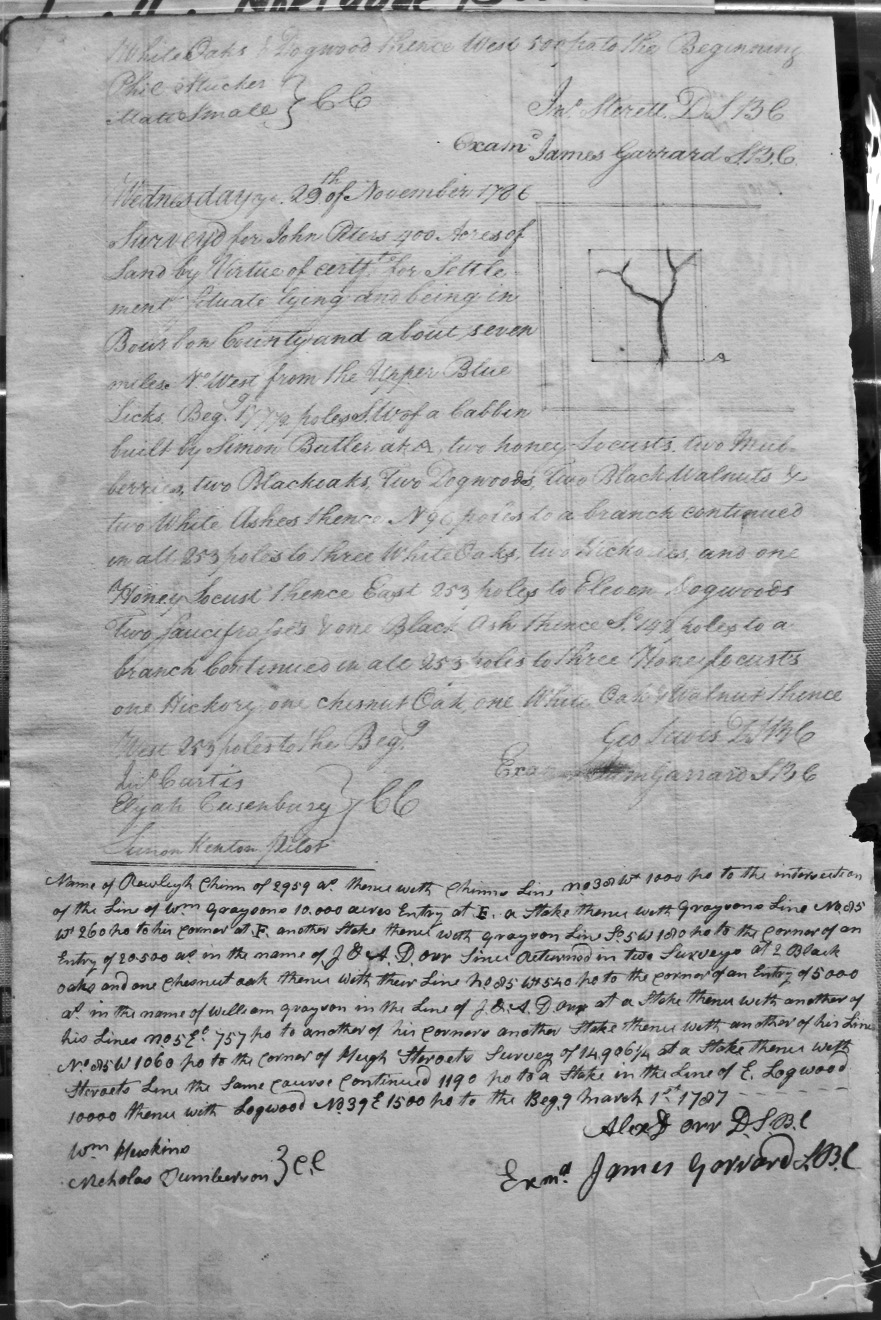 White Oaks & Dogwood thence West 500 po to the Beginning
Phil
Matt Small } CC
Jno. Sterett D S B C
Examd James Garrard S.B.C.
Wednesday ye. 29th of November 1786
Survey'd for John Peters 400 Acres of
Land by Virtue of certft for Settle-
ment Situate lying and being in
Bourbon County and about seven
miles No West from the Upper Blue
Licks. Begg 177½ poles S.W of a Cabbin
A
built by Simon Butler at A, two honey Locusts, two Mul-
berries, two Blackoaks, Two Dogwoods, Two Black Walnuts &
two White Ashes thence N 96 poles to a branch continued
in all 253 poles to three White Oaks, two Hickories, and one
Honey Locust thence East 253 poles to Eleven Dogwoods
Two Saucifrasses & one Black Ash thence So. 142 poles to a
branch Continued in all 253 poles to three Honey locusts
one Hickory, one chesnut Oak, one White Oak & Walnut thence
West 253 poles to the Begg
Geo Lewis D S B C
Exa Garrard S B C
Jno Curtis
Elijah Cusenbury } CC
Simon Kenton pilot
Name of Rawleigh Chinn of 2959 as. thence with Chinns Line No 38 Wt 1000 po to the intersection
of the Line of Wm Graysons 10.000 acres Entry at E. a Stake thence with Graysons Line No. 85
Wt 260 po to his corner at F. another Stake thence with Grayson Line So. 5 W 180 po to the corner of an
Entry of 20.500 as. in the name of J & A. D. orr Lines Returned in two Surveys at 2 Black
oaks and one Chesnut oak thence with their Line No 85 Wt 540 po to the corner of an Entry of 5000
as. in the name of William Grayson in the Line of J. & A. D Orr at a Stake thence with another of
his Lines No 5 Et. 757 po to another of his corners another Stake thence with another of his Lines
No. 85 W 1060 po to the corner of Hugh Survey of 14906¼ at a Stake thence with
Line the Same Course Continued 1190 po to a Stake in the Line of E. Logwood
10000 thence with Logwood No. 39 E 1500 po to the Begg March 1st 1787
Alex D orr D.S B.C
Wm Huskins
Nicholas Tumberson } CC
Exmd. James Garrard S.B.C